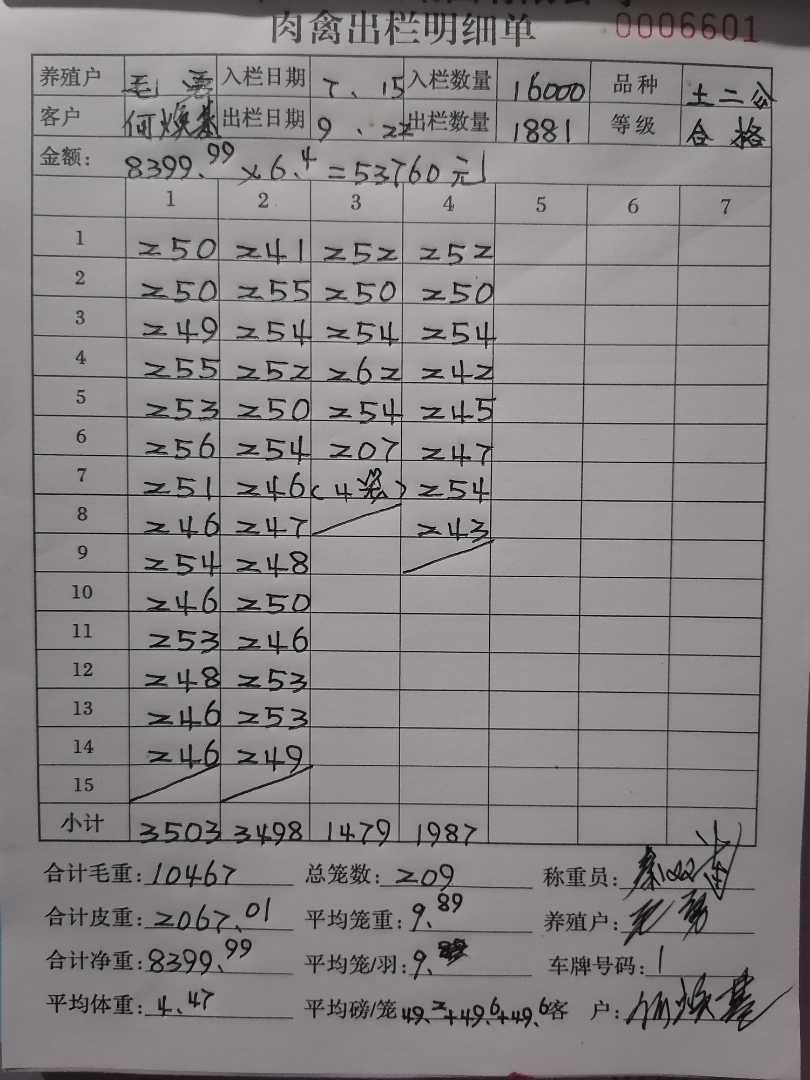 肉禽出栏明细单 0006601
养殖户 毛勇 入栏日期 7、15 入栏数量 16000 品种 土二公
客户 何焕基 出栏日期 9、22 出栏数量 1881 等级 合格
金额: 8399.99×6.4=53760元
1 2 3 4 5 6 7
1 250 241 252 252
2 250 255 250 250
3 249 254 254 254
4 255 252 262 242
5 253 250 254 245
6 256 254 207 247
7 251 246 (4笼) 254
8 246 247 243
9 254 248
10 246 250
11 253 246
12 248 253
13 246 253
14 246 249
15
小计 3503 3498 1479 1987
合计毛重: 10467 总笼数: 209 称重员:
合计皮重: 2067.01 平均笼重: 9.89 养殖户: 毛勇
合计净重: 8399.99 平均笼/羽: 9. 车牌号码: 1
平均体重: 4.47 平均磅/笼 49.2+49.6+49.6 客 户: 何焕基